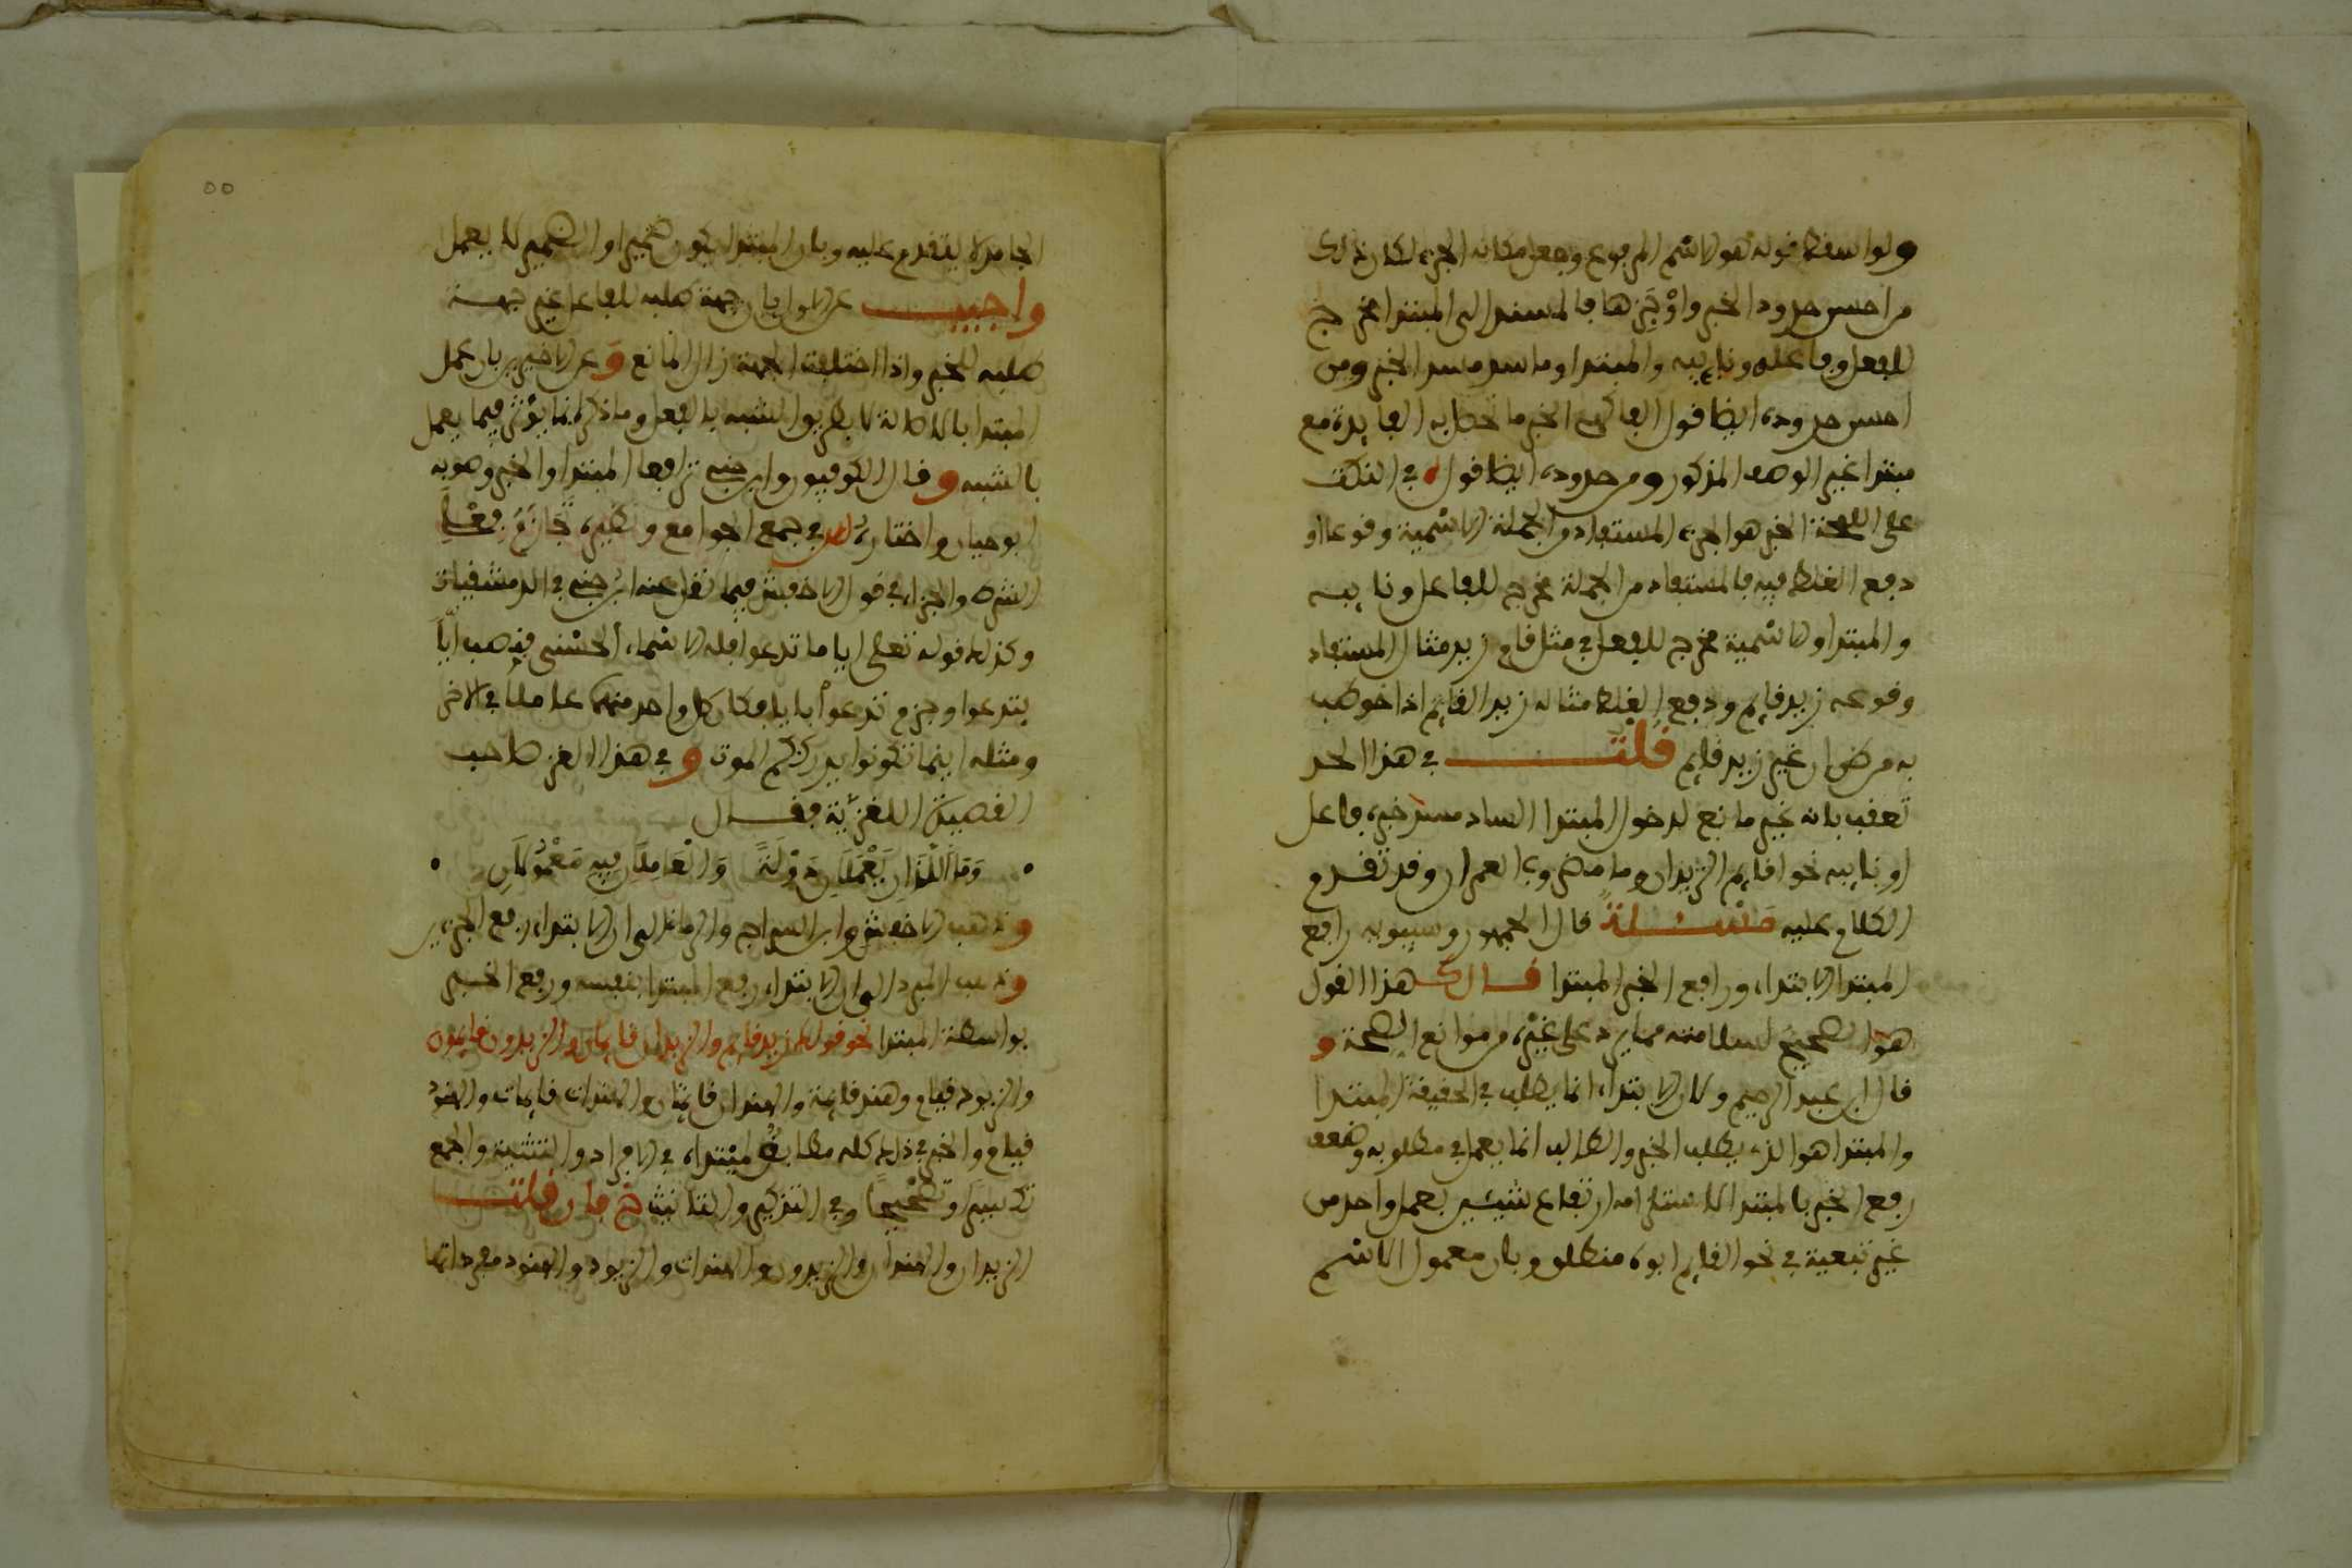 ولو اسقط قوله هو الاسم المرفوع وجعل مكانه الجزء لكان ذلك
من احسن حدود الخبر واوْجَزِها فالمسند الى المبتدا مخرج
للفعل وفاعله ونايبه والمبتدا وما سد مسد الخبر ومن
احسن حدوده ايضا قول الفاكهي الخبر ما تحصل به الفايدة مع
مبتدا غير الوصف المذكور ومن حدوده ايضا قوله في النكت
على اللمحة الخبر هو الجزء المستفاد من الجملة الاسمية وقوعا او
دفع الغلط فيه فالمستفاد من الجملة مخرج للفاعل ونايبه
والمبتدا والاسمية مخرج للفعل في مثل قام زيد مثال المستفاد
وقوعه زيد قايم ودفع الغلط مثاله زيد القايم اذا خوطب
به من ظن ان غير زيد قايم قلت في هذا الحد
تعقب بانه غير مانع لدخول المبتدا الساد مسد خبره فاعل
او نايبه نحو اقايم الزيدان وما مضروب العمران وقد تقدم
الكلام عليه مسئلة قال الجمهور وسيبويه رافع
المبتدا الابتداء ورافع الخبر المبتدا قال هذا القول
هو الصحيح لسلامته مما يرد على غيره من موانع الصحة و
قال ابن عبد الرحيم ولان الابتداء انما يطلب في الحقيقة المبتدا
والمبتدا هو الذي يطلب الخبر والطالب انما يعمل في مطلوبه وضعف
رفع الخبر بالمبتدا لاستلزامه ارتفاع شيئين بعمل واحد من
غير تبعية في نحو القايم ابوه منطلق وبان معمول الاسم
الجامد لا يتقدم عليه وبان المبتدا يكون ضميرا والضمير لا يعمل
واجيب عن الاول بان جهة طلبه للفاعل غير جهة
طلبه للخبر واذا اختلفت الجهة زال المانع و عن الاخيرين بان عمل
المبتدا بالاصالة لا بطريق الشبه بالفعل وما ذكر انما يؤثر فيما يعمل
بالشبه وقال الكوفيون وابن جني ترافعا المبتدا والخبر وصوبه
ابو حيان واختاره في جمع الجوامع ونظيره تَجَازُمُ فِعْلَيِ
الشرط والجزاء في قول الاخفش فيما نقل عنه ابن جني في الدمشقيات
وكذلك قوله تعلى ايا ما تدعوا فله الاسماء الحسنى فنصب ايّاً
بتدعوا وجزم تدعوا بايا فكان كل واحد منهما عاملا في الاخر
ومثله اينما تكونوا يدرككم الموت و في هذا الغز صاحب
القصيدة اللغزية فقال
• وَمَا اللَّذَانِ يَعْمَلَانِ دَوْلَةً وَالْعَامِلَانِ فِيهِ مَعْمُولَانِ •
وذهب الاخفش وابن السراج والرماني الى ان الابتداء رفع الجزءين
وذهب المبرد الى ان الابتداء رفع المبتدا بنفسه ورفع الخبر
بواسطة المبتدا نحو قولك زيد قايم والزيدان قايمان والزيدون قايمون
والزيود قيام وهند قايمة والهندان قايمتان والهندات قايمات والهنود
قيام والخبر في ذلك كله مطابق لمبتداه في الافراد والتثنية والجمع
تكسيرا وتصحيحا وفي التذكير والتانيث فان قلت
الزيدان والهندان والزيدون والهندات والزيود والهنود مفرداتها